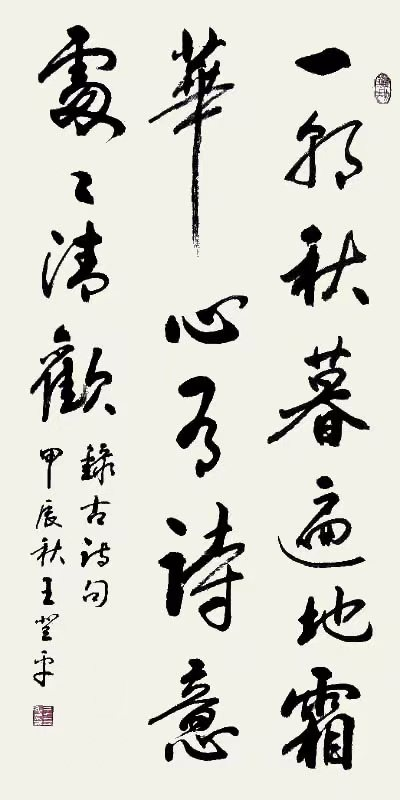 一朝秋暮遍地霜
華心有詩意
處々清歡
錄古詩句
甲辰秋王登平